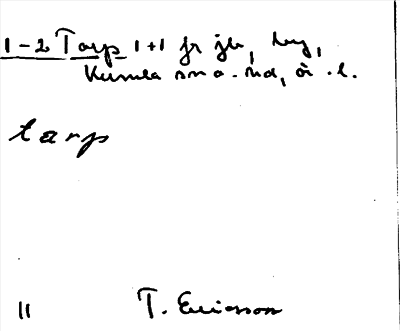 1-2 Tarp 1+1 fr jb, by,
Kumla sn o. hd, ör. l.
tarp
11 T. Ericsson